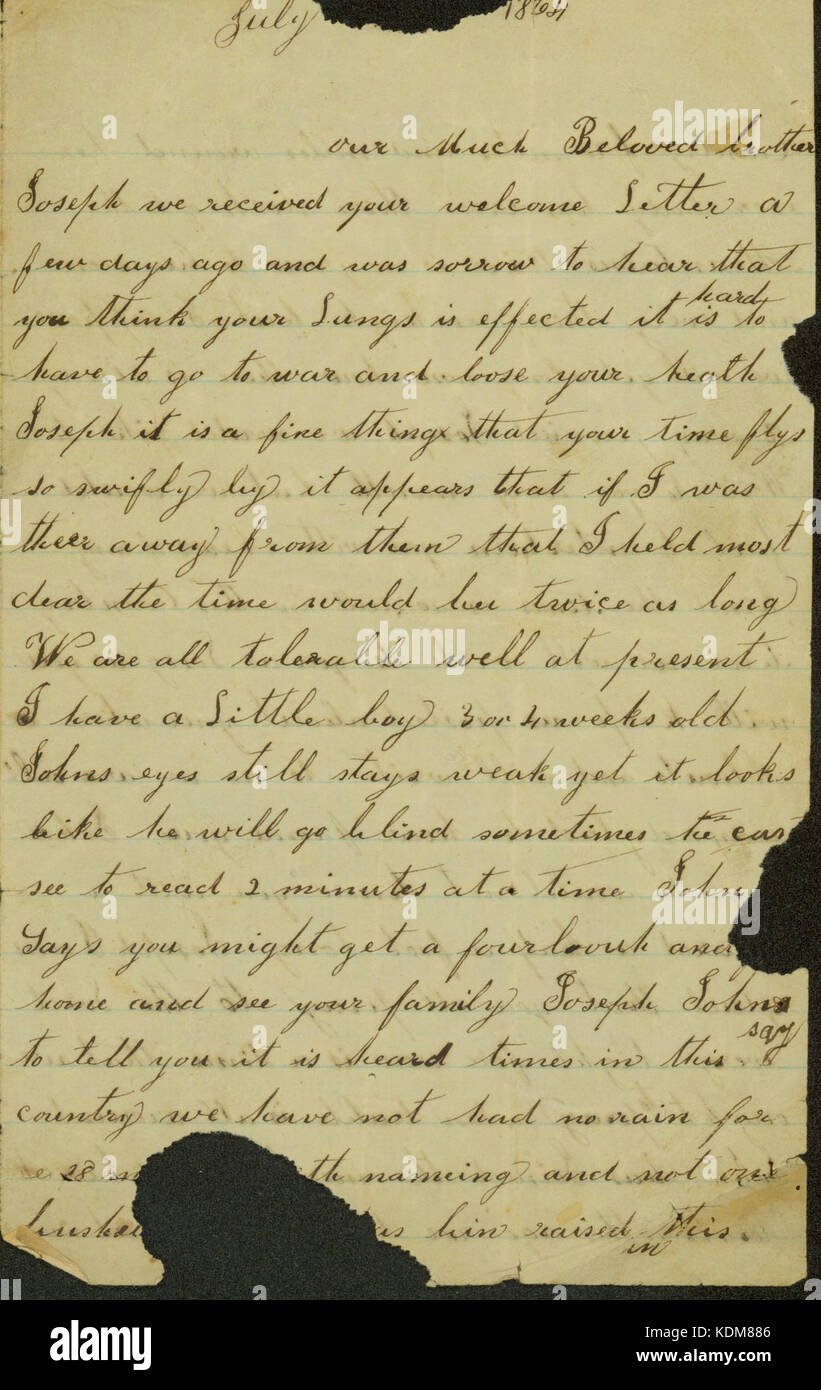 July 1864
our Much Beloved brother
Joseph we received your welcome Letter a
few days ago and was sorrow to hear that
you think your Lungs is effected it is hard to
have to go to war and loose your health
Joseph it is a fine thing that your time flys
so swifly by it appears that if I was
theer away from them that I held most
dear the time would bee twice as long
We are all tolerable well at present
I have a Little boy 3 or 4 weeks old
Johns eyes still stays weak yet it looks
like he will go blind sometimes he
see to read 2 minutes at a time John
Says you might get a and
home and see your family Joseph John say
to tell you it is heard times in this
country we have not had no rain for
28 nameing and not one
bin raised in this
alamy stock photo
Image ID: KDM886
www.alamy.com